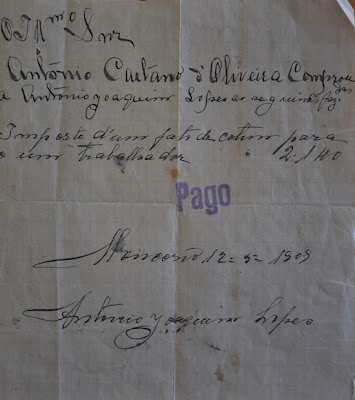 O Illmo Snr
António Caetano d'Oliveira Comprou
a António Joaquim Lopes as seguintes faz
das
Importe d'um fato de cotim para
o um trabalhador 2.140
Pago
12-5-1909
Antonio Joaquim Lopes